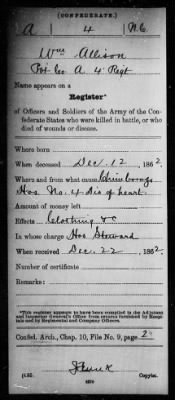 (CONFEDERATE.)
A 4 N.C.
Wm Allison
Pvt Co A. 4 Regt
Name appears on a
Register*
of Officers and Soldiers of the Army of the Con-
federate States who were killed in battle, or who
died of wounds or disease.
Where born
When deceased Dec. 12, 1862.
Where and from what cause Chimborazo
Hos No. 4 Dis of heart
Amount of money left
Effects Clothing &c
In whose charge Hos Steward
When received Dec. 22, 1862.
Number of certificate
Remarks:
*This register appears to have been compiled in the Adjutant
and Inspector General's Office from returns furnished by Hospi-
tals and by Regimental and Company Officers.
Confed. Arch., Chap. 10, File No. 9, page 2
Copyist.